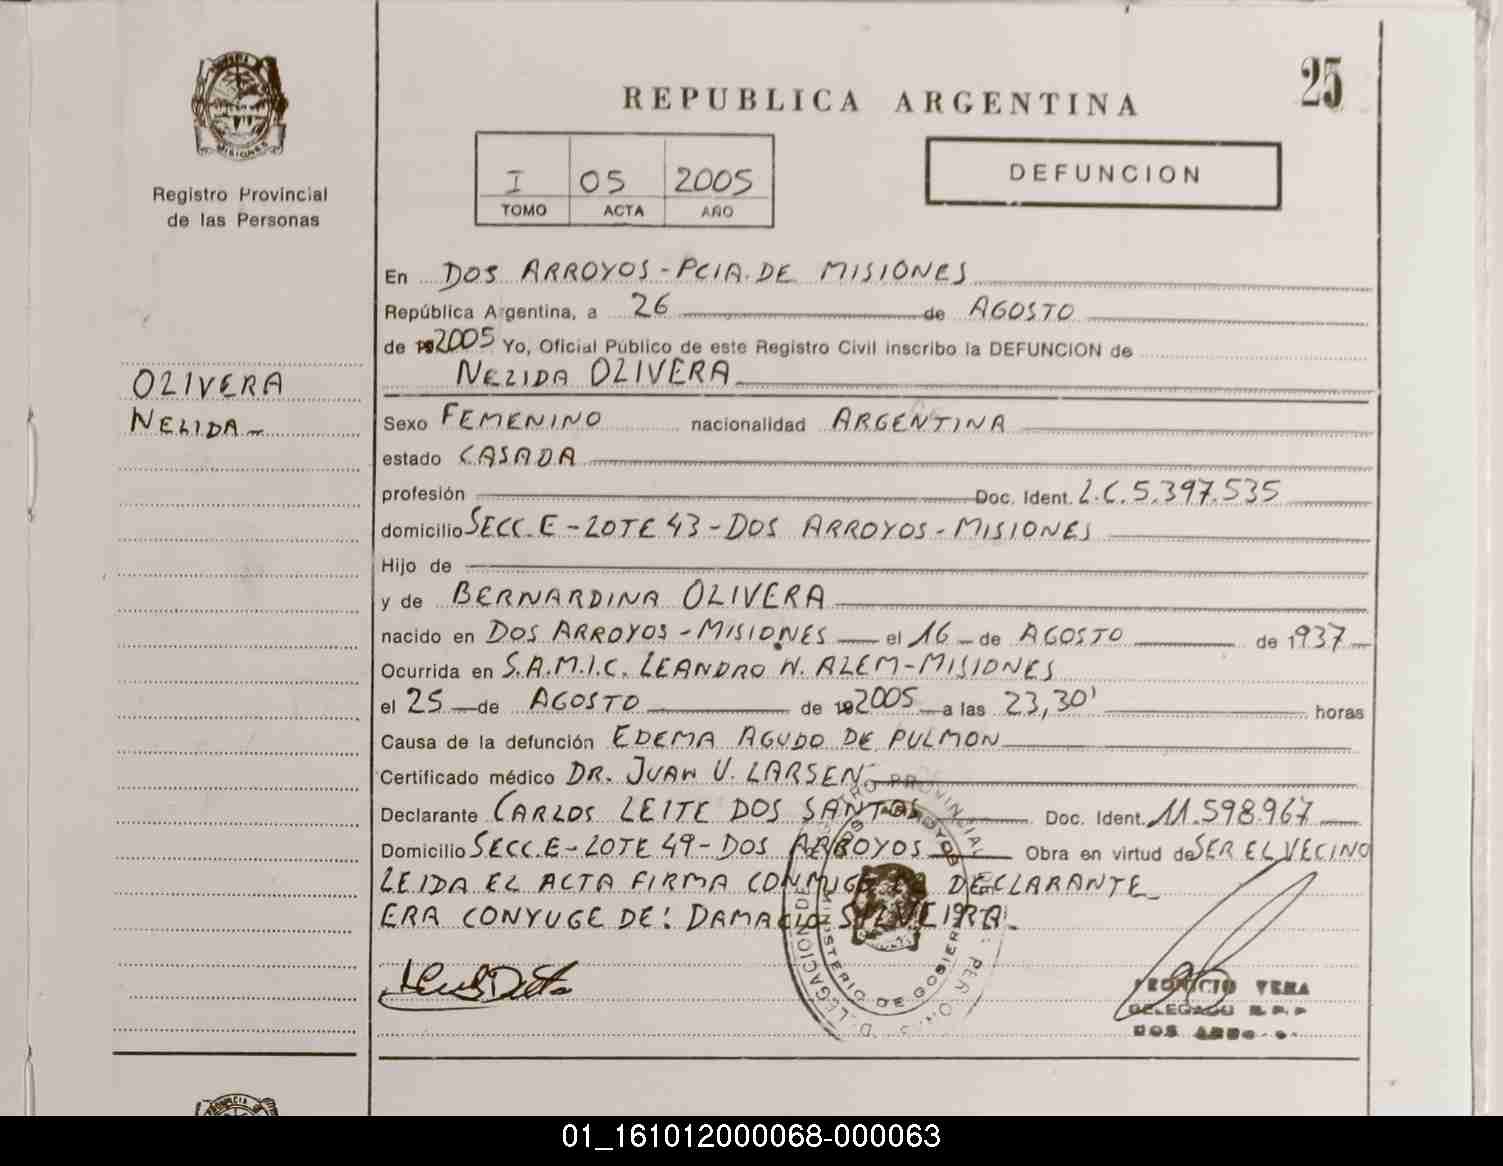 PROVINCIA DE
MISIONES
Registro Provincial
de las Personas
OLIVERA
NELIDA
REPUBLICA ARGENTINA
25
I 05 2005
TOMO ACTA AÑO
DEFUNCION
En DOS ARROYOS - PCIA. DE MISIONES
República Argentina, a 26 de AGOSTO
de 192005 Yo, Oficial Público de este Registro Civil inscribo la DEFUNCION de
NELIDA OLIVERA
Sexo FEMENINO nacionalidad ARGENTINA
estado CASADA
profesión Doc. Ident. L.C. 5.397.535
domicilio SECC. E - LOTE 43 - DOS ARROYOS - MISIONES
Hijo de
y de BERNARDINA OLIVERA
nacido en DOS ARROYOS - MISIONES el 16 de AGOSTO de 1937
Ocurrida en S.A.M.I.C. LEANDRO N. ALEM - MISIONES
el 25 de AGOSTO de 192005 a las 23,30' horas
Causa de la defunción EDEMA AGUDO DE PULMON
Certificado médico DR. JUAN U. LARSEN
Declarante CARLOS LEITE DOS SANTOS Doc. Ident. 11.598.967
Domicilio SECC. E - LOTE 49 - DOS ARROYOS Obra en virtud de SER EL VECINO
LEIDA EL ACTA FIRMA CONMIGO EL DECLARANTE
ERA CONYUGE DE: DAMACIO SILVEIRA.
MINISTERIO DE GOBIERNO
DOS ARROYOS
VERA
DELEGADO R.P.P
DOS ARROYOS
01_161012000068-000063